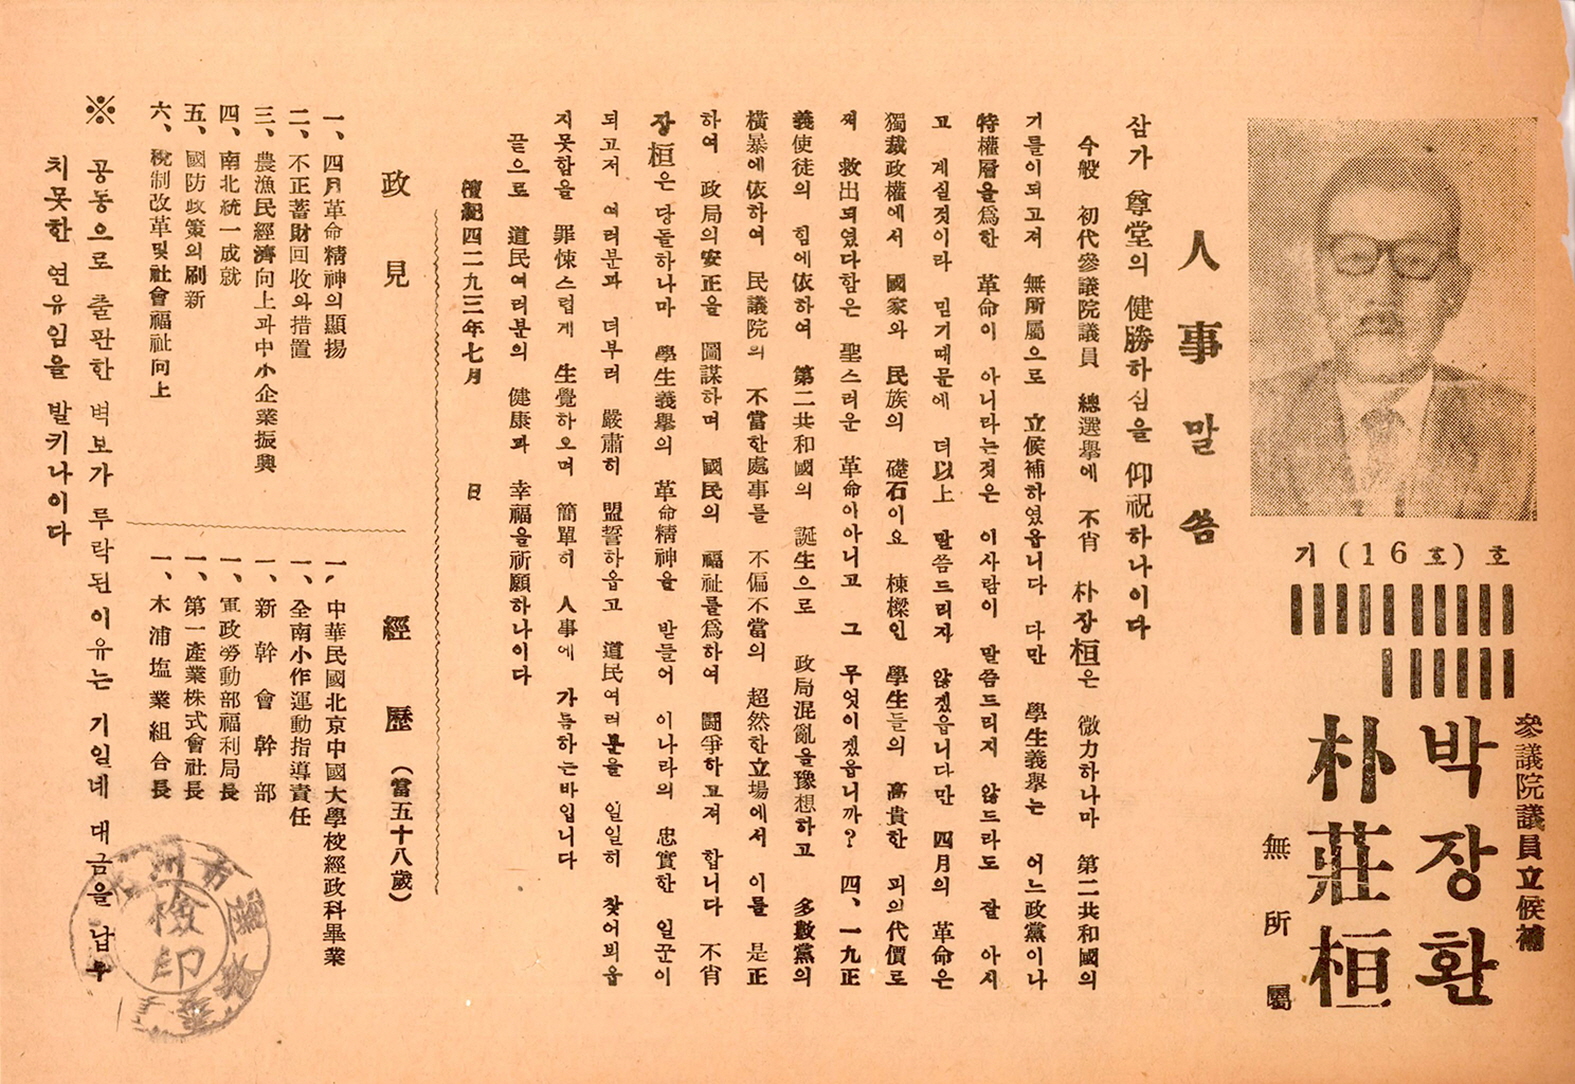 기 (16호) 호
參議院議員立候補
박장환
朴莊桓
無所屬
人事말씀
삼가 尊堂의 健勝하심을 仰祝하나이다
今般 初代參議院議員 總選擧에 不肖 朴장桓은 微力하나마 第二共和國의
기틀이되고저 無所屬으로 立候補하였읍니다 다만 學生義擧는 어느政黨이나
特權層을爲한 革命이 아니라는것은 이사람이 말씀드리지 않드라도 잘 아시
고 계실것이라 믿기때문에 더以上 말씀드리지 않겠읍니다만 四月의 革命은
獨裁政權에서 國家와 民族의 礎石이요 棟樑인 學生들의 高貴한 피의代價로
써 救出되였다함은 聖스러운 革命이아니고 그 무엇이겠읍니까? 四、一九正
義使徒의 힘에依하여 第二共和國의 誕生으로 政局混亂을豫想하고 多數黨의
橫暴에依하여 民議院의 不當한處事를 不偏不當의 超然한立場에서 이를 是正
하여 政局의安正을 圖謀하며 國民의 福祉를爲하여 鬪爭하고저 합니다 不肖
장桓은 당돌하나마 學生義擧의 革命精神을 받들어 이나라의 忠實한 일꾼이
되고저 여러분과 더부러 嚴肅히 盟誓하옵고 道民여러분을 일일히 찾어뵈옵
지못함을 罪悚스럽게 生覺하오며 簡單히 人事에 가름하는바입니다
끝으로 道民여러분의 健康과 幸福을祈願하나이다
檀紀四二九三年七月 日
政見
一、四月革命精神의顯揚
二、不正蓄財回收와措置
三、農漁民經濟向上과中小企業振興
四、南北統一成就
五、國防政策의刷新
六、稅制改革및社會福祉向上
經歷 (當五十八歲)
一、中華民國北京中國大學校經政科畢業
一、全南小作運動指導責任
一、新幹會幹部
一、軍政勞動部福利局長
一、第一產業株式會社長
一、木浦塩業組合長
※ 공동으로 출판한 벽보가 루락된이유는 기일네 대금을 납부
치못한 연유임을 발키나이다
檢印